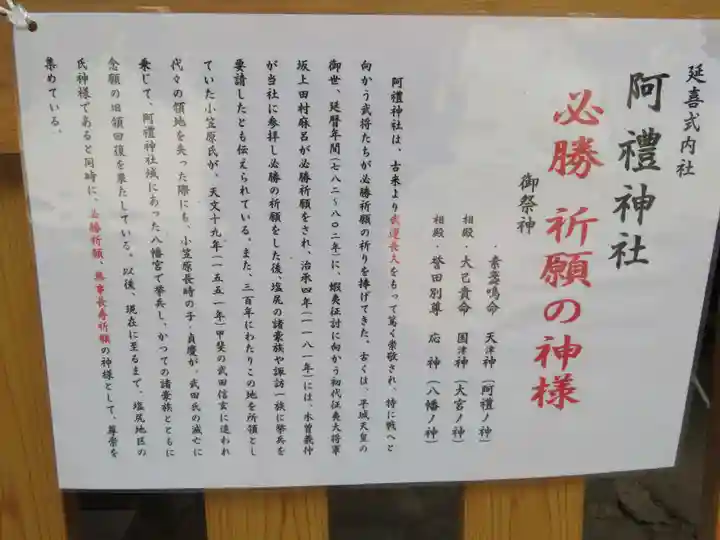 延喜式内社
阿禮神社
必勝祈願の神様
御祭神
・素盞嗚命 天津神(阿禮ノ神)
相殿・大己貴命 国津神(大宮ノ神)
相殿・誉田別尊 応神(八幡ノ神)
阿禮神社は、古来より武運長久をもって篤く崇敬され、特に戦へと
向かう武将たちが必勝祈願の祈りを捧げてきた。古くは、平城天皇の
御世、延暦年間(七八二~八〇二年)に、蝦夷征討に向かう初代征夷大将軍
坂上田村麻呂が必勝祈願をされ、治承四年(一一八一年)には、木曽義仲
が当社に参拝し必勝の祈願をした後、塩尻の諸豪族や諏訪一族に挙兵を
要請したとも伝えられている。また、三百年にわたりこの地を所領とし
ていた小笠原氏が、天文十九年(一五五一年)甲斐の武田信玄に追われ
代々の領地を失った際にも、小笠原長時の子・貞慶が、武田氏の滅亡に
乗じて、阿禮神社域にあった八幡宮で挙兵し、かつての諸豪族とともに
念願の旧領回復を果たしている。以後、現在に至るまで、塩尻地区の
氏神様であると同時に、必勝祈願、無事長寿祈願の神様として、尊崇を
集めている。